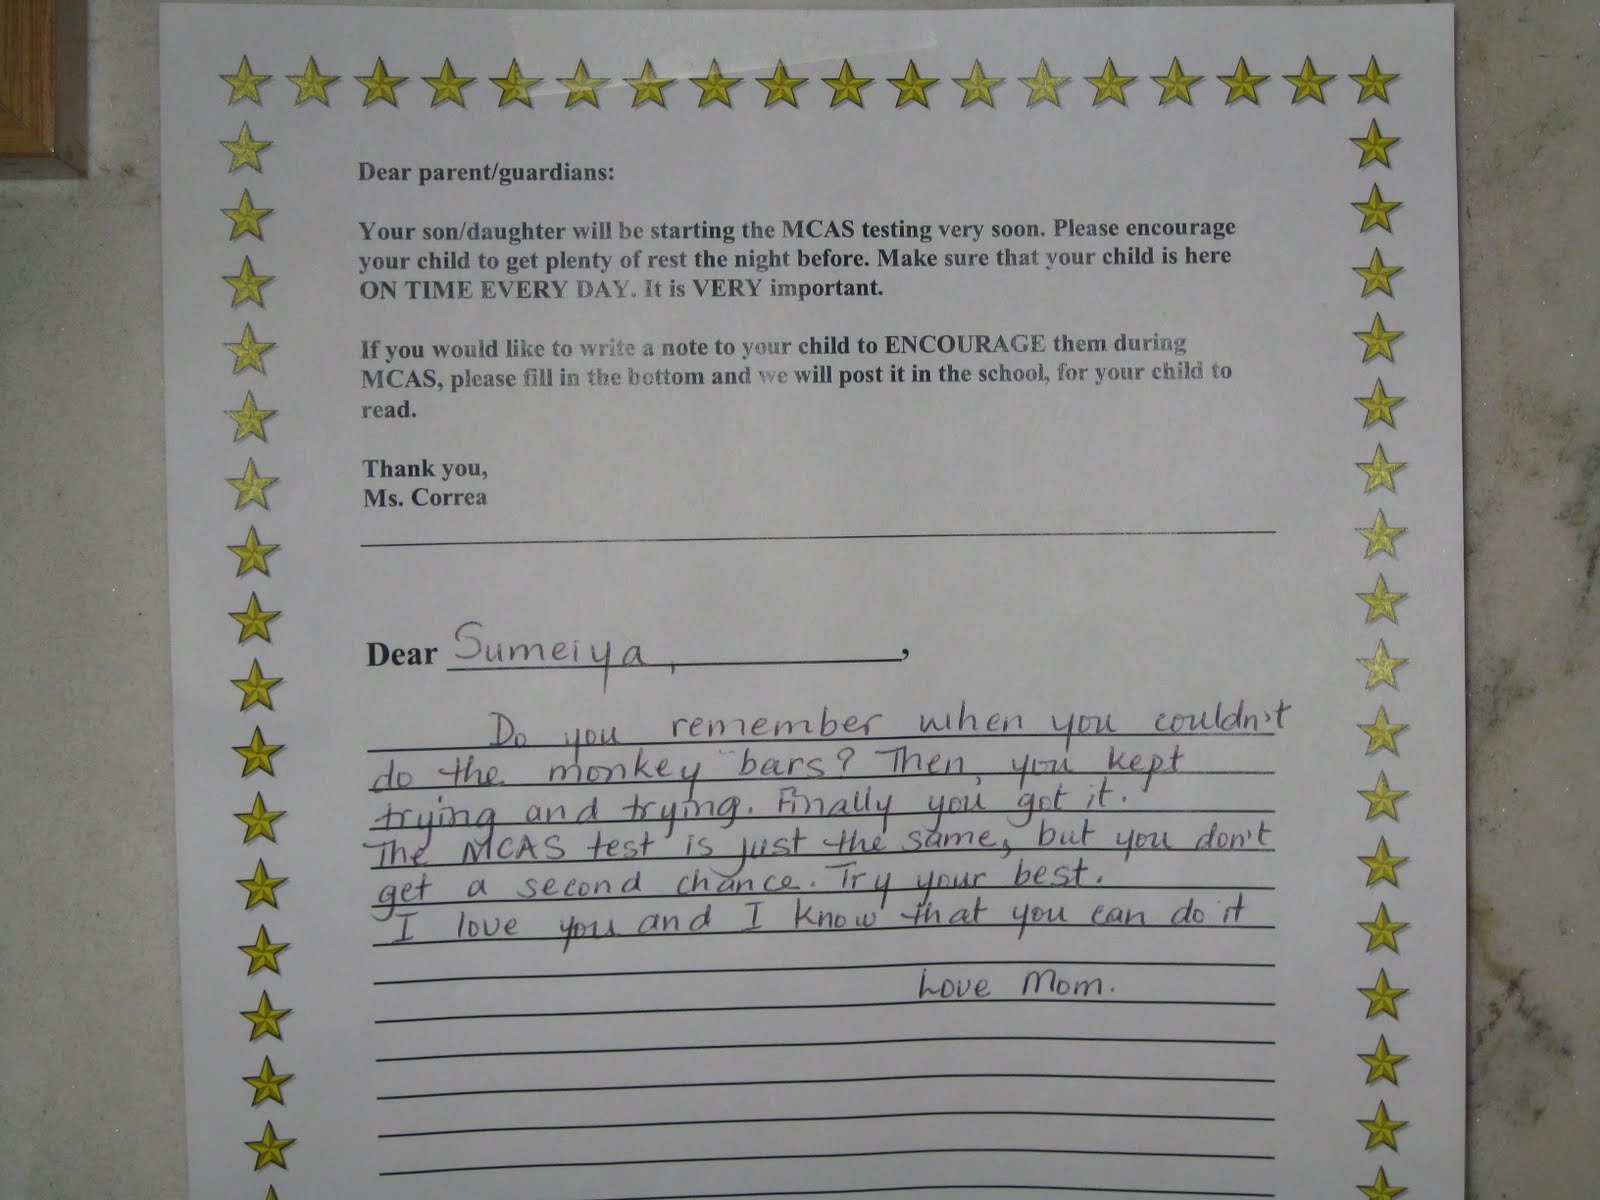 Dear parent/guardians:
Your son/daughter will be starting the MCAS testing very soon. Please encourage
your child to get plenty of rest the night before. Make sure that your child is here
ON TIME EVERY DAY. It is VERY important.
If you would like to write a note to your child to ENCOURAGE them during
MCAS, please fill in the bottom and we will post it in the school, for your child to
read.
Thank you,
Ms. Correa
Dear Sumeiya, ,
Do you remember when you couldn't
do the monkey bars? Then, you kept
trying and trying. Finally you got it.
The MCAS test is just the same, but you don't
get a second chance. Try your best.
I love you and I know that you can do it
Love Mom.